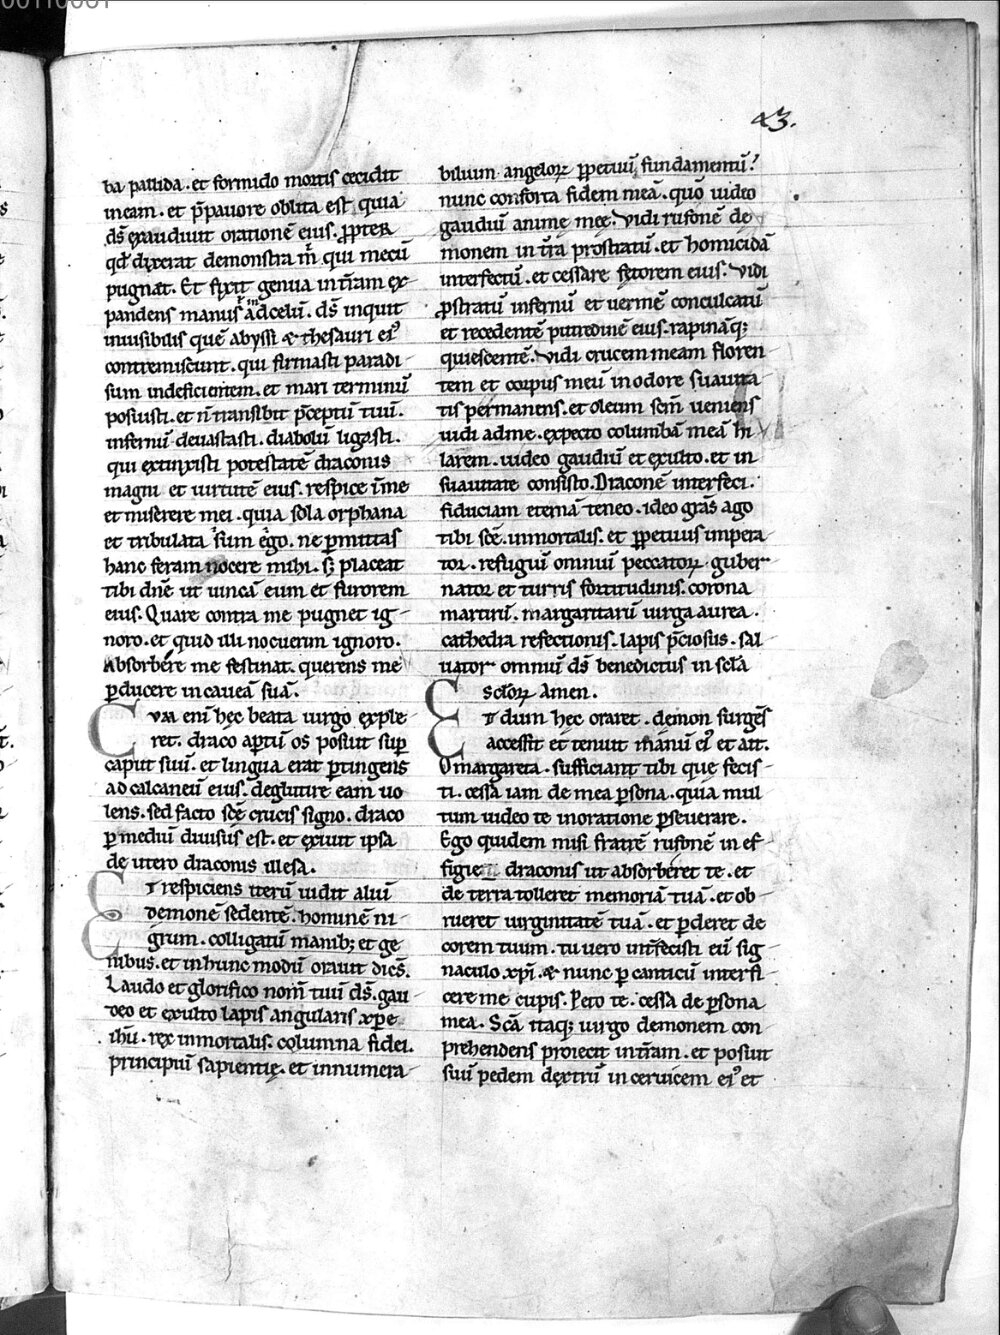 43.
ba pallida. et formido mortis cecidit
meam. et p̄pauore oblita est quia
d̄s exaudiuit orationē eius. ꝓpter
qd̓ dixerat demonstra m̓ qui mecū
pugnat. Et fixit genua int̄ram ex-
pandens manus ad celū. d̄s inquit
inuisibilis quē abyssi & thesauri ei᷒
contremiscunt. qui firmasti paradi-
sum indeficientem. et mari terminū
posuisti. et n̄ transibit p̄ceptū tuū.
infernū deuastasti. diabolū ligasti.
qui extinxisti potestatē draconis
magni et uirtutē eius. respice ī me
et miserere mei. quia sola orphana
et tribulata sum ego. ne ꝑmittas
hanc feram nocere mihi. s; placeat
tibi dn̄e ut uincā eum et furorem
eius. Quare contra me pugnet ig-
noro. et quid illi nocuerim ignoro.
Absorbere me festinat. querens me
ꝑducere in caueā suā.
Cvm eni᷒ hęc beata uirgo exple-
ret. draco aꝑtū os posuit suꝑ
caput suū. et lingua erat ꝑtingens
ad calcaneū eius. deglutire eam uo-
lens. sed facto sc̄e crucis signo. draco
ꝑ mediū diuisus est. et exiuit ipsa
de utero draconis illesa.
Et respiciens iterū uidit aliū
demonē sedentē. hominē ni-
grum. colligatū manib; et ge-
nibus. et in hunc modū orauit dicēs.
Laudo et glorifico nom̄ tuū d̄s. gau-
deo et exulto lapis angularis xp̄e
ihū. rex inmortalis. columna fidei.
principiū sapientię. et innumera-
bilium angeloꝝ ꝑpetuū fundamentū.
nunc conforta fidem meā. quō uideo
gaudiū anime meę. Vidi rufonē de-
monem in t̄ra prostratū. et homicidā
interfectū. et cessare fętorem eius. Vidi
ꝓstratū infernū et uermē conculcatū
et recedentē putredinē eius. rapināq;
quiescentē. Vidi crucem meam floren-
tem et corpus meū in odore suauita-
tis permanens. et oleum sc̄m ueniens
uidi ad me. expecto columbā meā hi-
larem. uideo gaudiū et exulto. et in
suauitate consisto. Draconē interfeci.
fiduciam eternā teneo. ideo grās ago
tibi sc̄e. inmortalis. et ꝑpetuus impera-
tor. refugiū omniū peccatoꝝ. guber-
nator et turris fortitudinis. corona
martirū. margaritarū uirga aurea.
cathedra refectionis. lapis p̄ciosus. sal-
uator omniū d̄s benedictus in sc̄la
sc̄loꝝ Amen.
Et dum hęc oraret. demon surgēs
accessit et tenuit manū ei᷒ et ait.
O margareta. sufficiant tibi que fecis-
ti. cessa iam de mea ꝑsona. quia mul-
tum uideo te in oratione ꝑseuerare.
Ego quidem misi fratrē rufonē in ef-
figie draconis ut absorberet te. et
de terra tolleret memoriā tuā. et ob-
rueret uirginitatē tuā. et ꝑderet de-
corem tuum. tu uero int̄fecisti eū sig-
naculo xp̄i. & nunc ꝑ canticū interfi-
cere me cupis. Peto te. cessa de ꝑsona
mea. Sc̄a itaq; uirgo demonem con-
prehendens proiecit in t̄ram. et posuit
suū pedem dextrū in ceruicem ei᷒ et